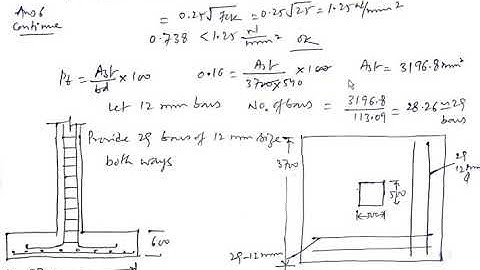 Ans 6
Continue
= 0.25√fck = 0.25√25 = 1.25 N/mm²
0.738 < 1.25 N/mm² OK
Pt = Ast/bd × 100 0.16 = Ast/(3700×540) × 100 Ast = 3196.8 mm²
Let 12 mm bars No. of bars = 3196.8/113.09 = 28.26 ≃ 29 bars
Provide 29 bars of 12 mm size
both ways
3700
29
12mm
φ
500
600
29-12mm